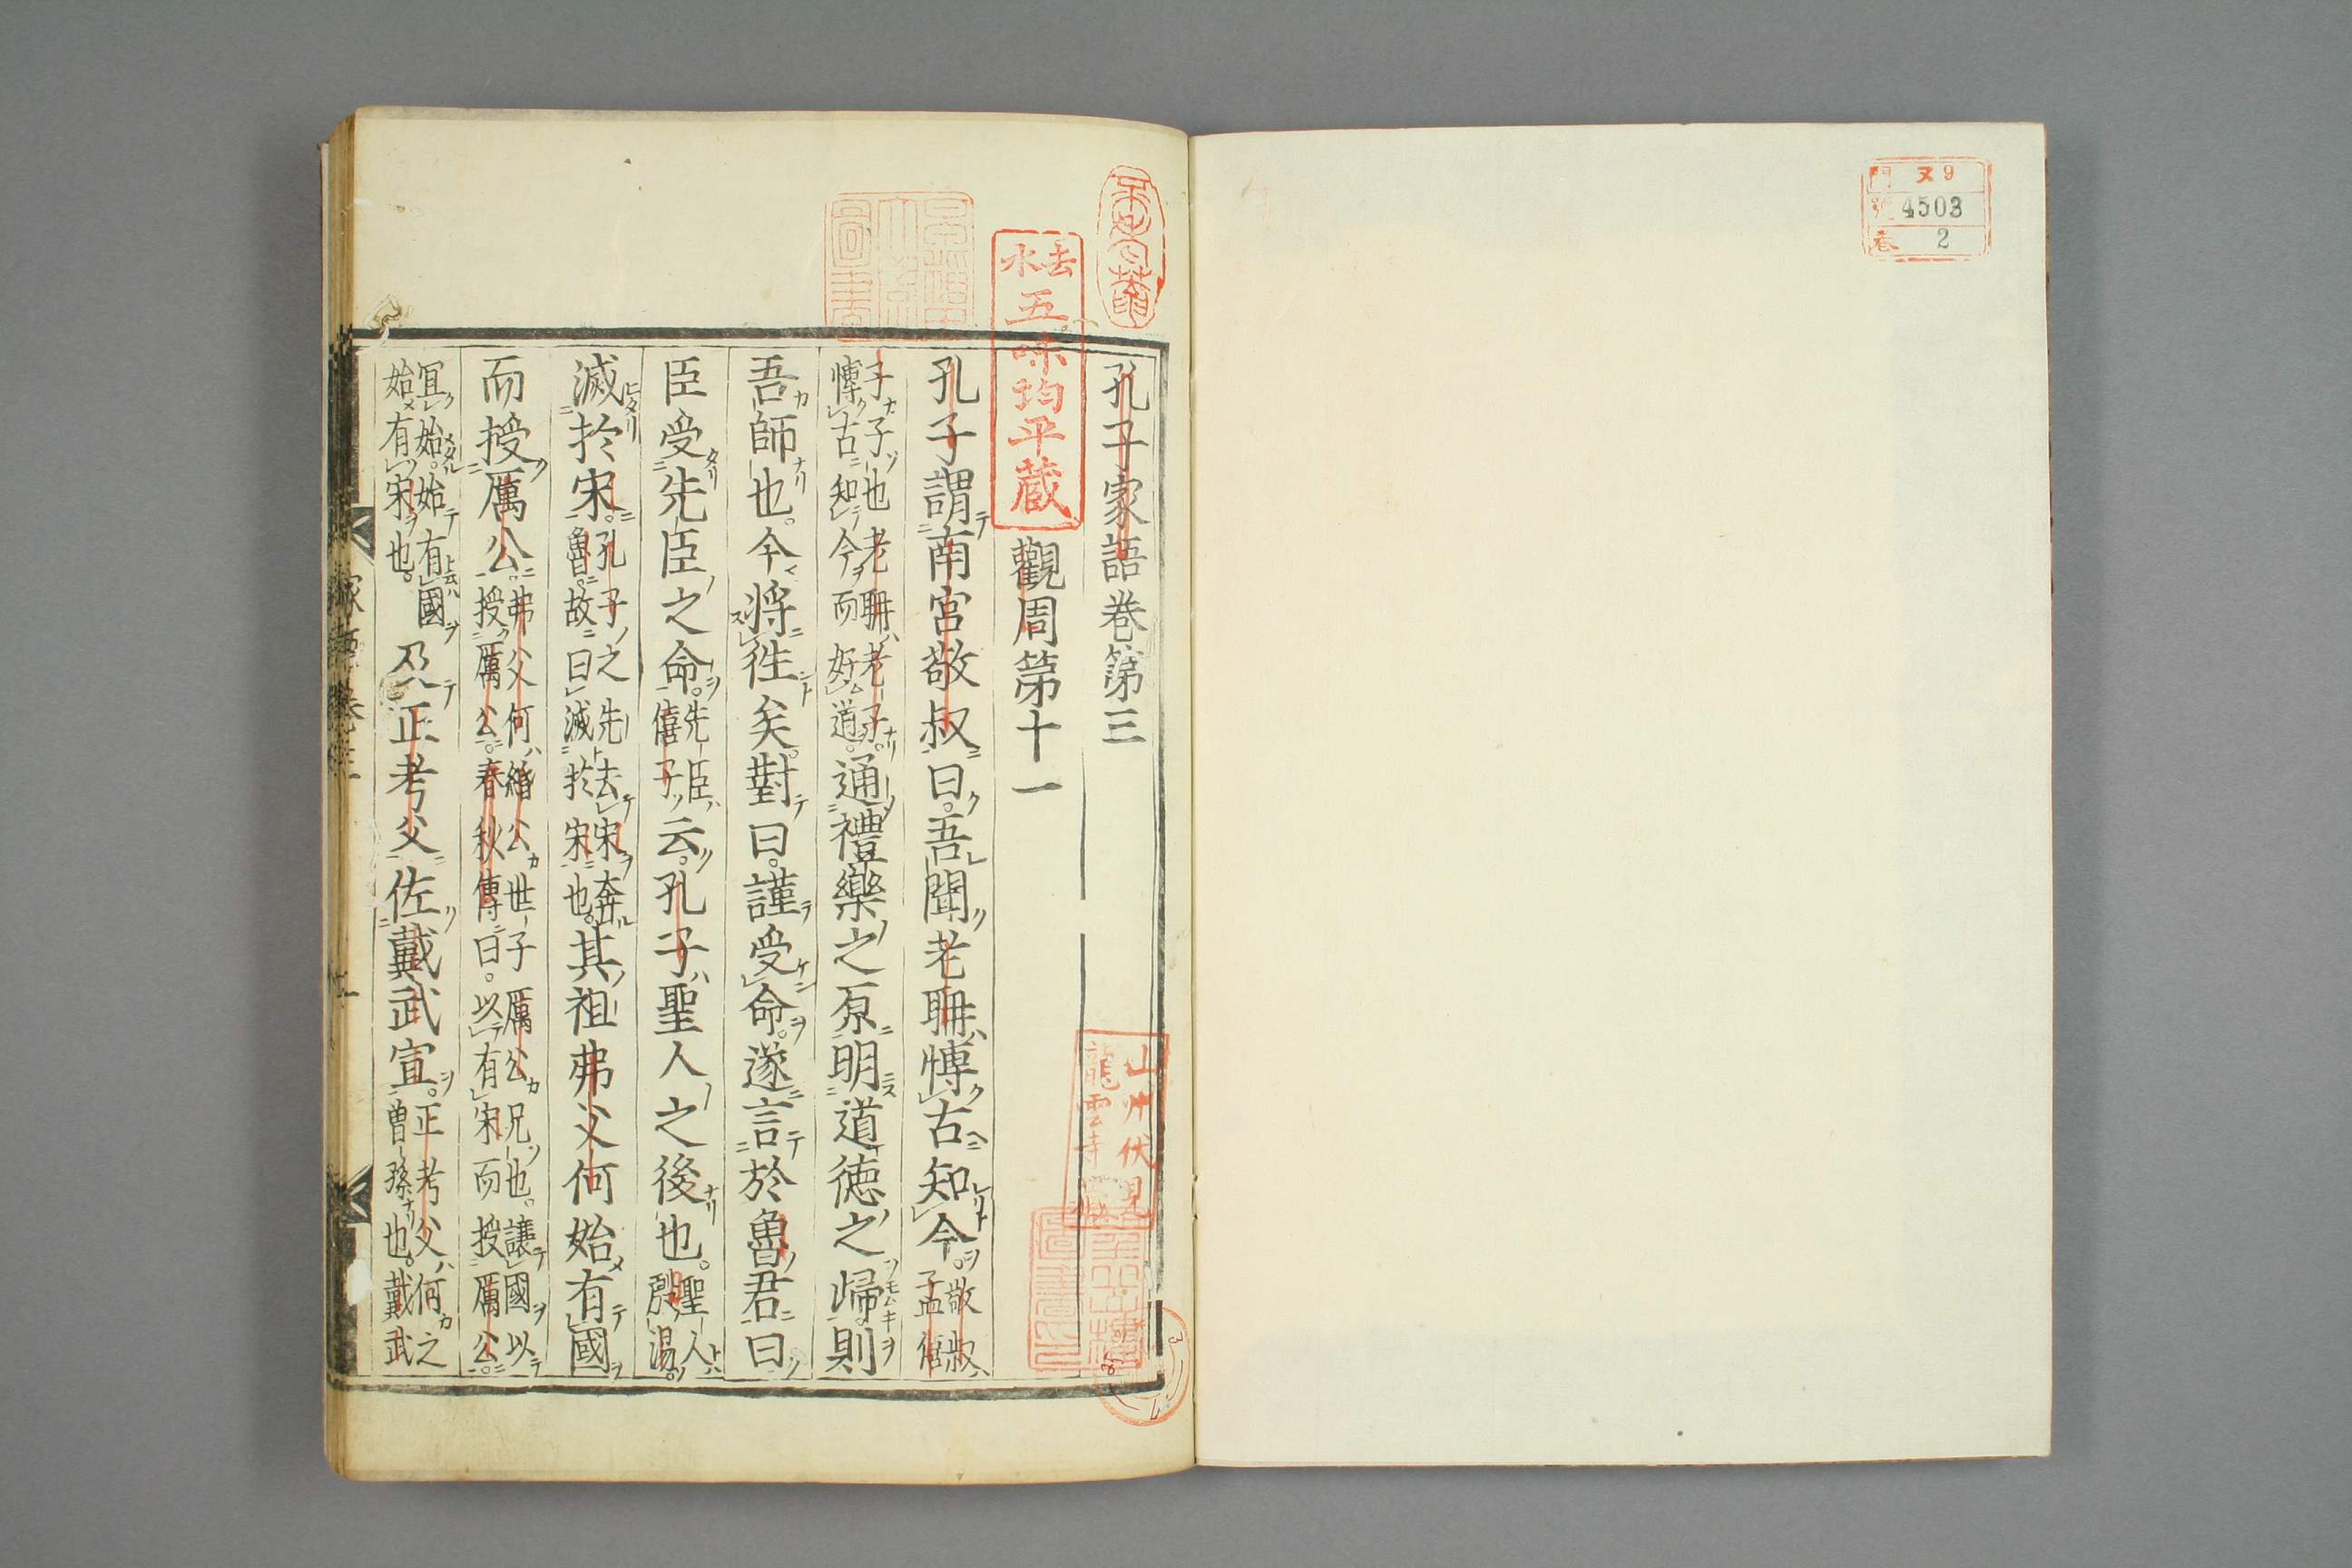 門 ヌ9
號 4503
巻 2
孔子家語巻第三
觀周第十一
孔子謂南宮敬叔曰。吾聞老聃博古知今。敬叔孟僖
子子也老聃老子。博古知今而好道。通禮樂之原明道徳之歸。則
吾師也。今將徃矣。對曰。謹受命。遂言於魯君曰
臣受先臣之命。先臣僖子云。孔子聖人之後也。聖人殷湯。
滅於宋。孔子之先去宋奔魯。故曰滅於宋也。其祖弗父何始有國
而授厲公。弗父何緡公世子厲公兄也。讓國以授厲公。春秋傳曰。以有宋而授厲公。
冝始。始有國始有宋也。及正考父佐戴武宣。正考父何之曽孫也。戴武
去水
五味均平蔵
山州伏見
龍雲寺